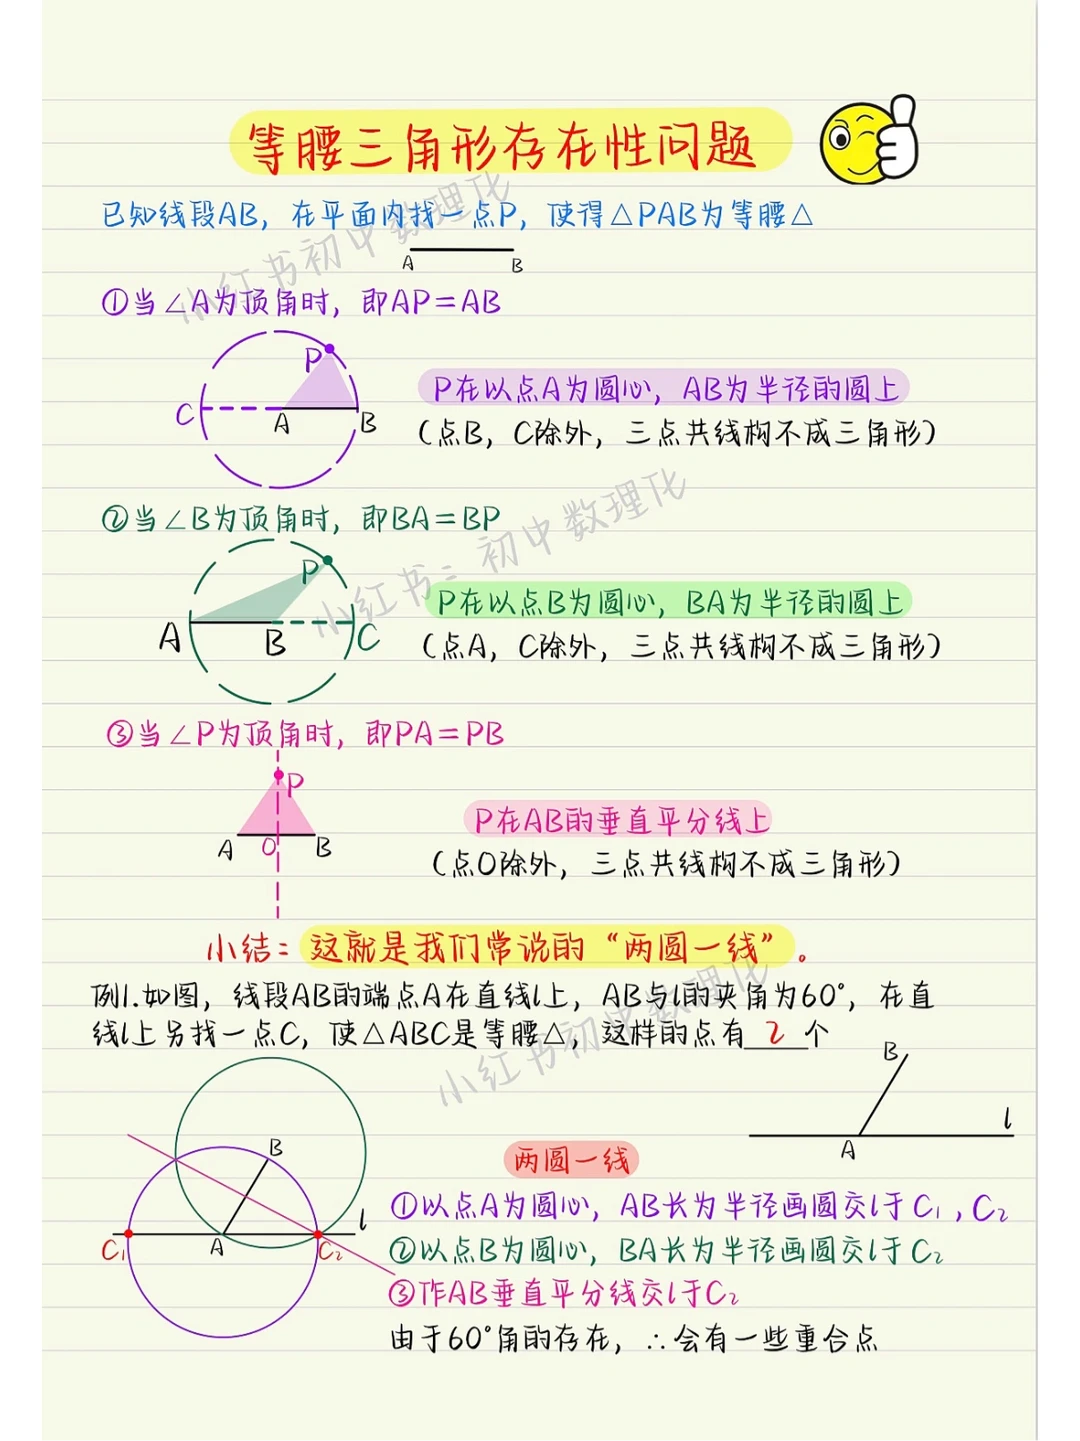 等腰三角形存在性问题
已知线段AB，在平面内找一点P，使得△PAB为等腰△
A B
①当∠A为顶角时，即AP=AB
P
C A B
P在以点A为圆心，AB为半径的圆上
（点B，C除外，三点共线构不成三角形）
②当∠B为顶角时，即BA=BP
P
A B C
P在以点B为圆心，BA为半径的圆上
（点A，C除外，三点共线构不成三角形）
③当∠P为顶角时，即PA=PB
P
A O B
P在AB的垂直平分线上
（点O除外，三点共线构不成三角形）
小结：这就是我们常说的“两圆一线”。
例1.如图，线段AB的端点A在直线l上，AB与l的夹角为60°，在直
线l上另找一点C，使△ABC是等腰△，这样的点有 2 个
B
A l
B
C₁ A C₂ l
两圆一线
①以点A为圆心，AB长为半径画圆交l于C₁，C₂
②以点B为圆心，BA长为半径画圆交l于C₂
③作AB垂直平分线交l于C₂
由于60°角的存在，∴会有一些重合点
小红书初中数理化
小红书：初中数理化
小红书初中数理化